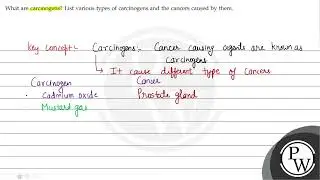 What are carcinogens? List various types of carcinogens and the cancers caused by them.
Key concept :- Carcinogens :- Cancer causing agents are known as
carcinogens
→ It cause different type of cancers
Carcinogen Cancer
• Cadmium oxide Prostate gland
Mustard gas
PW